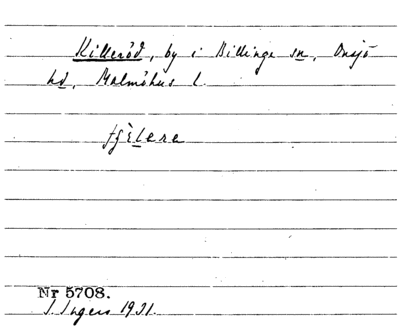 Killeröd, by i Billinge sn, Onsjö
hd, Malmöhus l.
Nr 5708.
I. Ingers 1931.